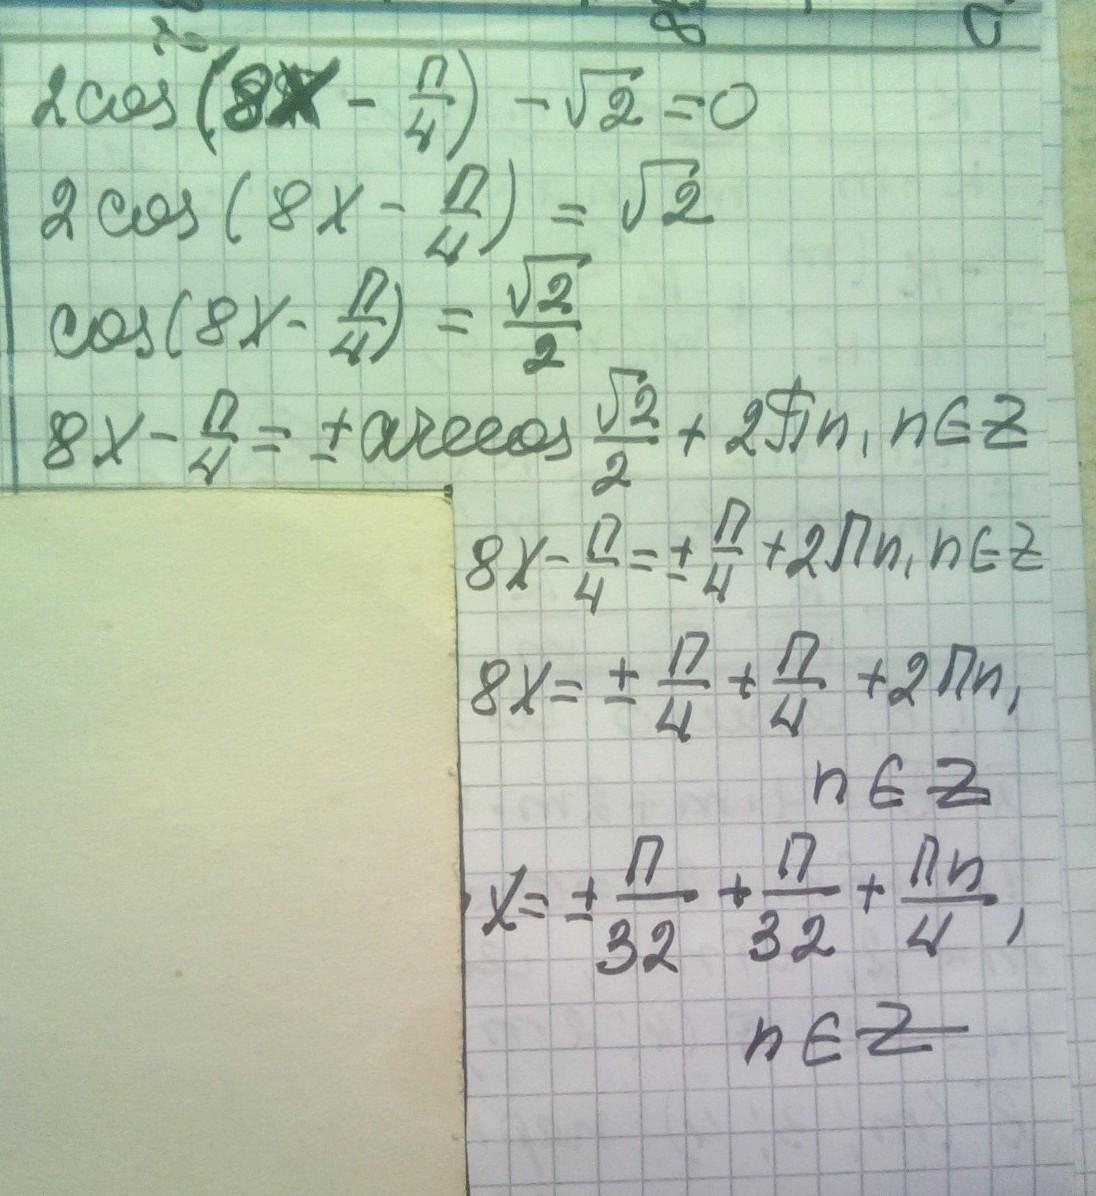 2cos(8x - π/4) - √2 = 0
2cos(8x - π/4) = √2
cos(8x - π/4) = √2/2
8x - π/4 = ± arccos √2/2 + 2πn, n∈Z
8x - π/4 = ± π/4 + 2πn, n∈Z
8x = ± π/4 + π/4 + 2πn,
n∈Z
x = ± π/32 + π/32 + πn/4,
n∈Z